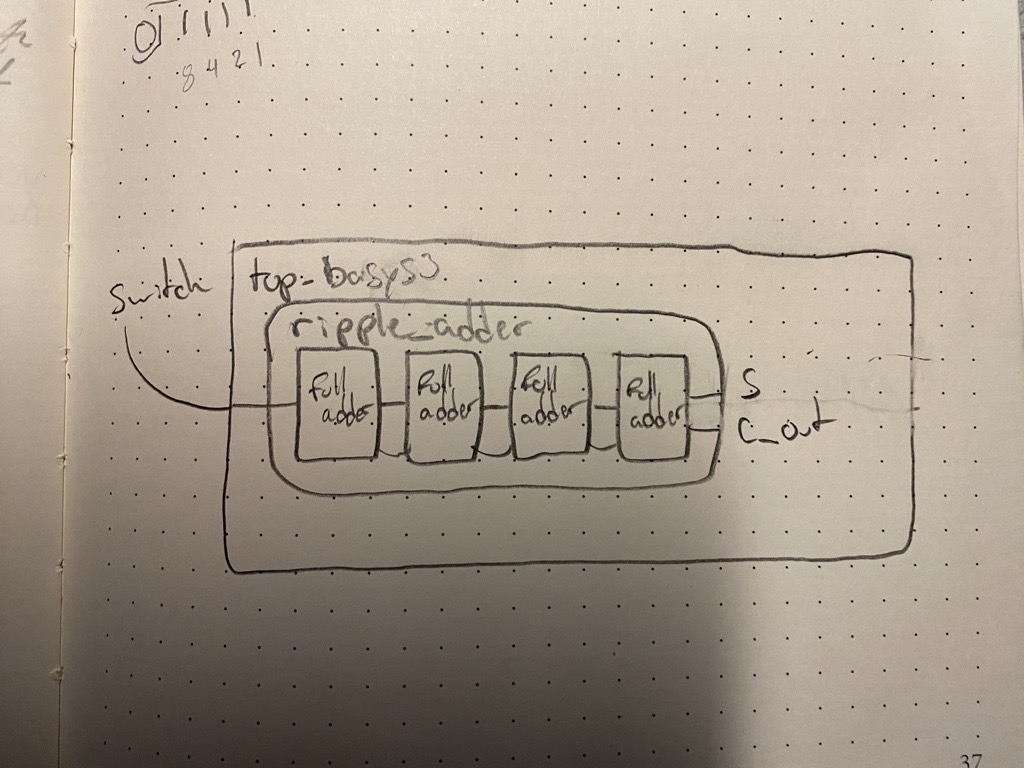 01111
8421
switch
top_basys3
ripple_adder
full adder
full adder
full adder
full adder
S
C_out
37